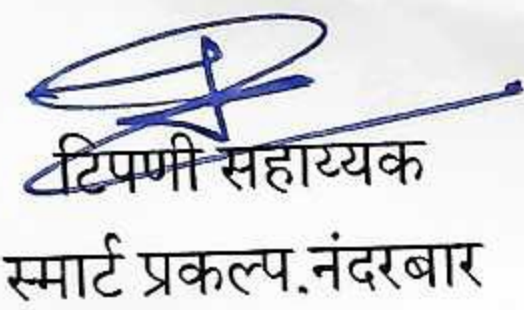 टिपणी सहाय्यक
स्मार्ट प्रकल्प.नंदरबार